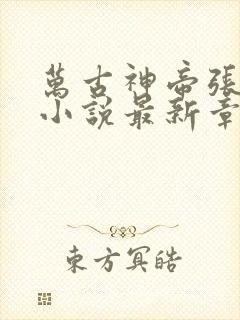 萬古神帝張
小說最新章
東方冥皓